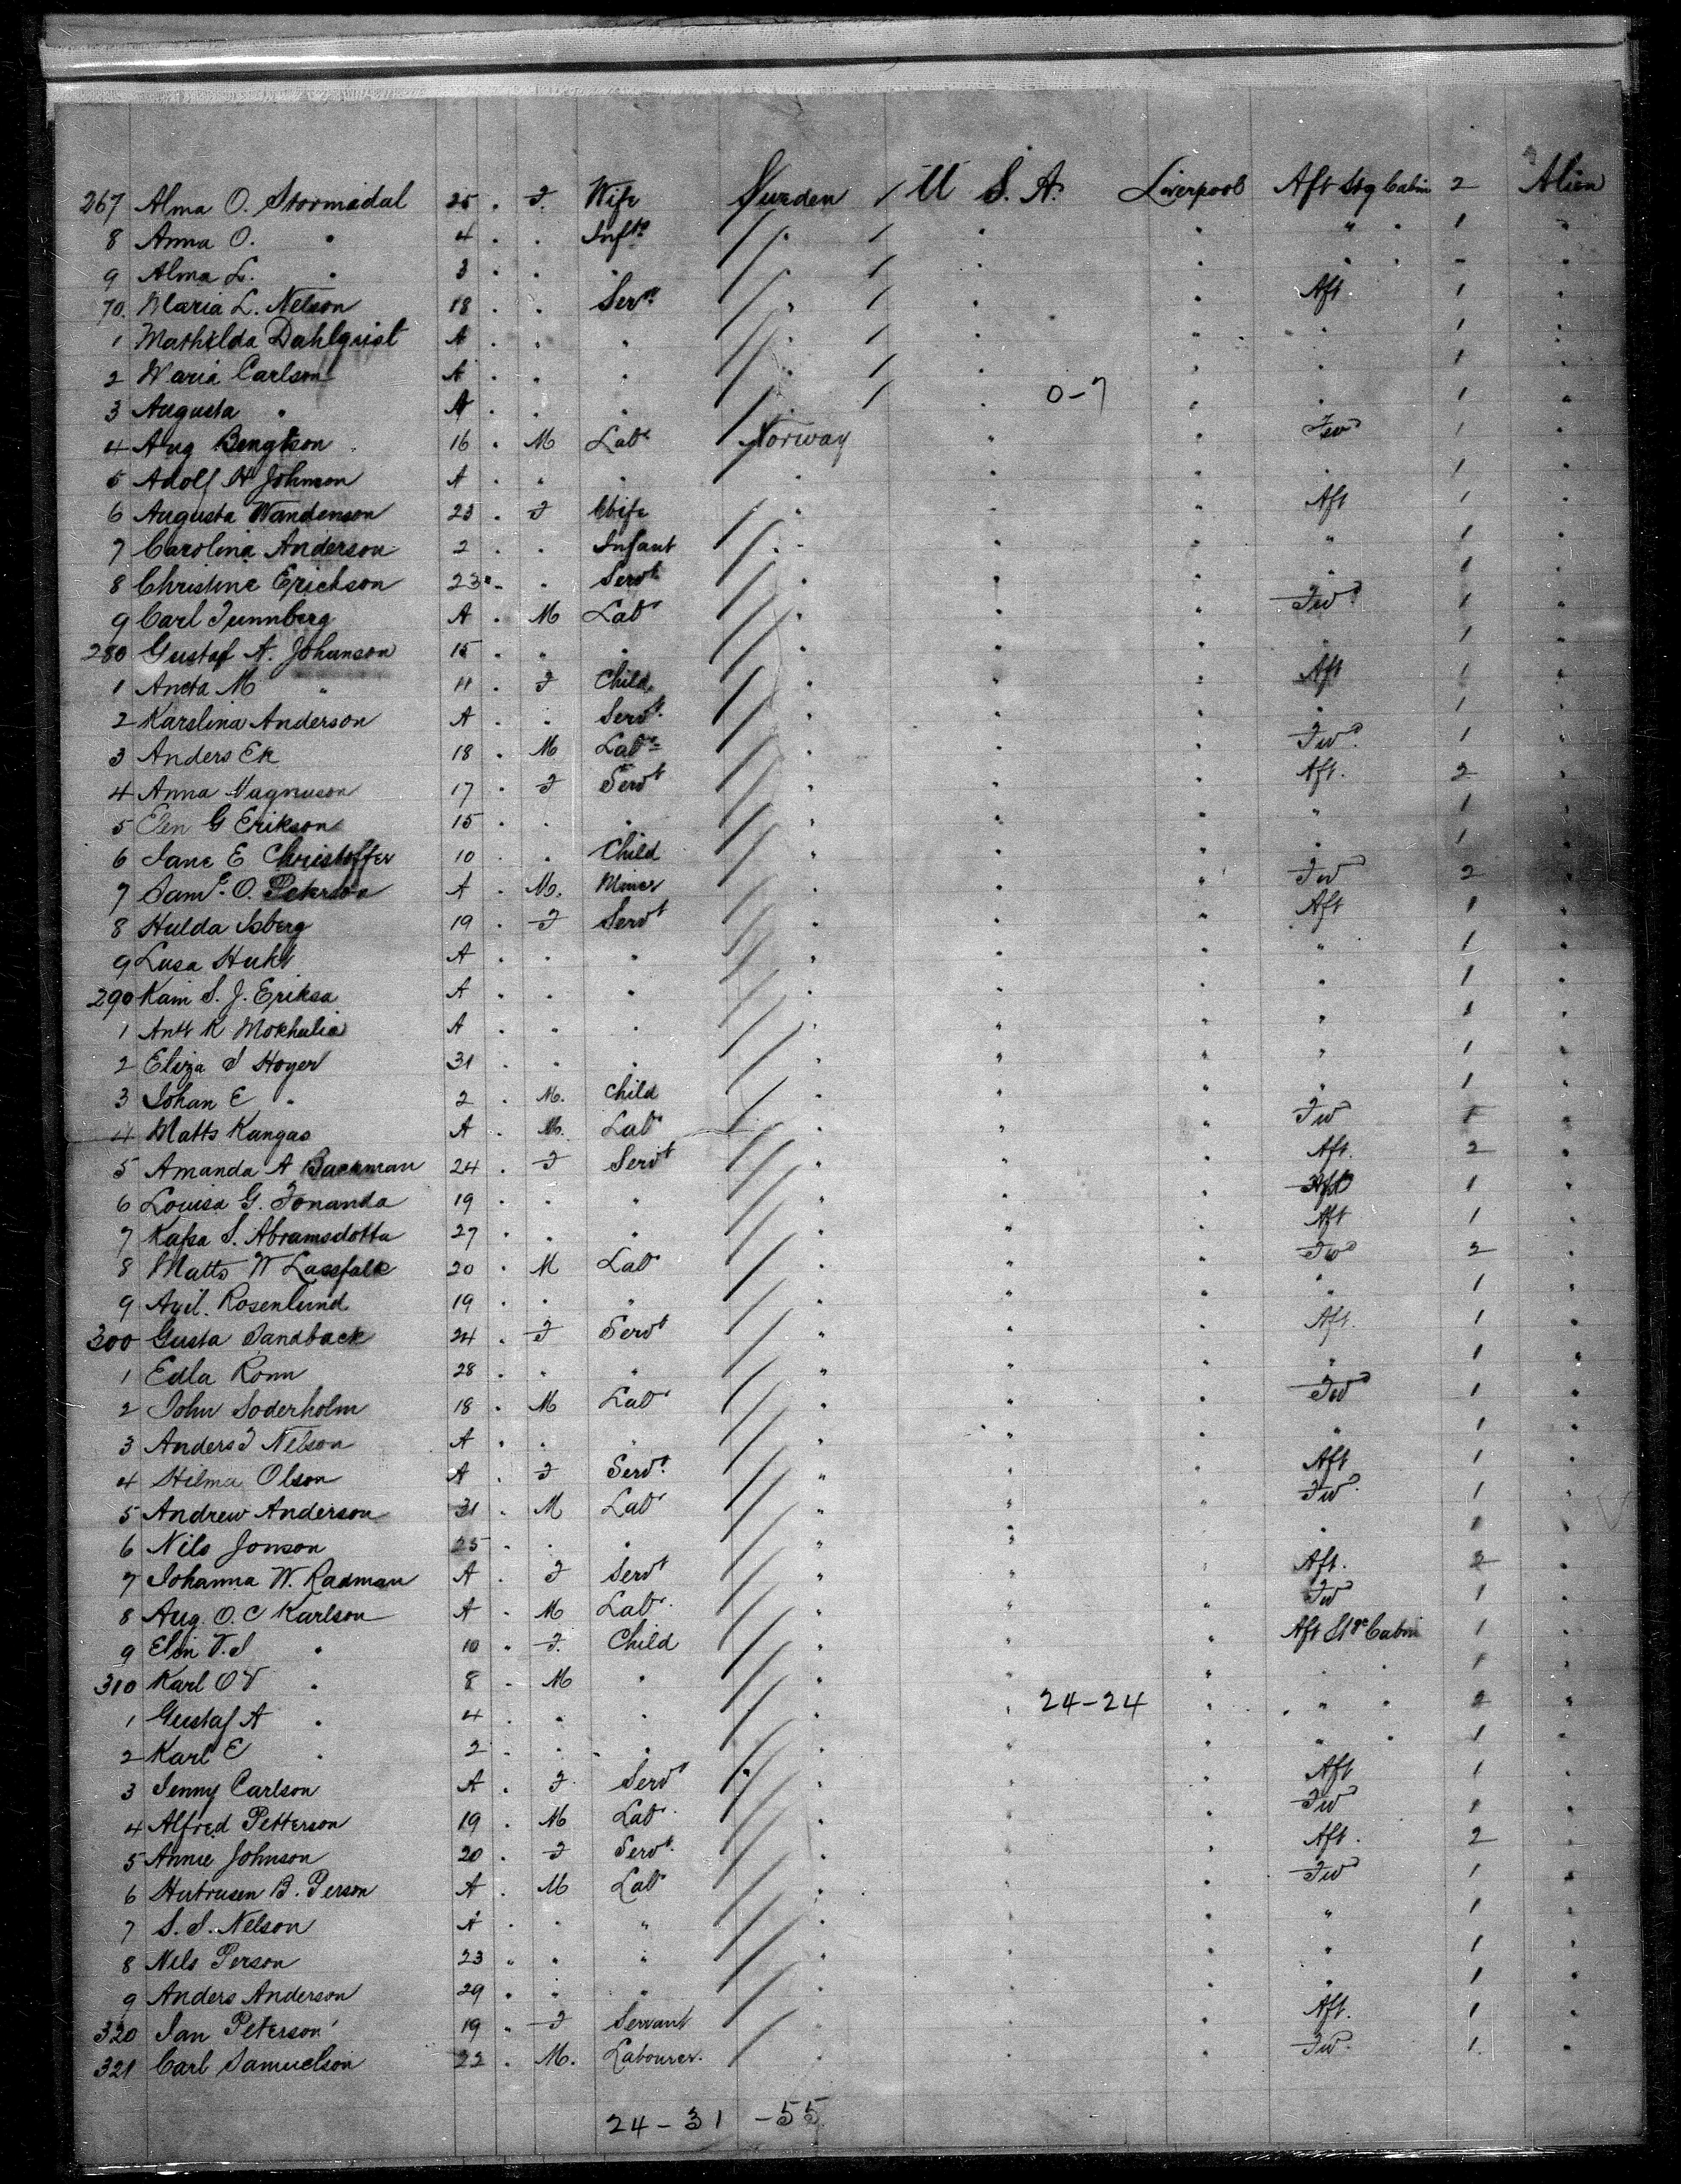 267 Alma O. Stormsdal 25 . F. Wife Sweden / U S. A. Liverpool Aft Stg Cabin 2 Alien
8 Anna O. " 4 . . Inft / " / " " " " 1 "
9 Alma L. " 3 " " " / " / " " " " - "
70. Maria L. Nelson 18 . . Servt / " / " " Aft 1 "
1 Mathilda Dahlquist A . " " / " / " " " 1 "
2 Maria Carlson A . " " / " / " " " 1 "
3 Augusta " A . " " / " / " 0-7 " " 1 "
4 Aug Bengtson 16 . M Labr Norway " " Fwd 1 "
5 Adolf H Johnson A . " " " " " " 1 "
6 Augusta Wandenson 23 . F Wife " " " Aft 1 "
7 Carolina Anderson 2 . . Infant // " " " " 1 "
8 Christine Erickson 23 " . Servt // " " " " 1 "
9 Carl Tunnberg A . M Labr // " " " Fwd 1 "
280 Gustaf A. Johanson 15 . " " // " " " " 1 "
1 Aneta M " 11 . F Child // " " " Aft 1 "
2 Karelina Anderson A . " Servt. // " " " " 1 "
3 Anders Ek 18 . M Labr // " " " Fwd. 1 "
4 Anna Magnuson 17 . F Servt // " " " Aft. 2 "
5 Elen G Erikson 15 . . " // " " " " 1 "
6 Jane E Christoffer 10 . " Child // " " " " 1 "
7 Saml. O. Peterson A . M. Miner // " " " Fwd 2 "
8 Hulda Isberg 19 . F Servt // " " " Aft 1 "
9 Lusa Huht A . " " // " " " " 1 "
290 Kain S. J. Eriksa A . " " // " " " " 1 "
1 Antt K Mokhulia A . " " // " " " " 1 "
2 Eliza S Hoyer 31 . " " // " " " " 1 "
3 Johan E " 2 . M. Child / " " " " 1 "
4 Matts Kangas A . M. Labr / " " " Fwd 1 "
5 Amanda A Backman 24 . F Servt // " " " Aft. 2 "
6 Louisa G. Fonanda 19 . " " // " " " Aft 1 "
7 Kajsa S. Abramsdotta 27 . " " // " " " Aft 1 "
8 Matts W Lassfalk 20 . M Labr // " " " Fwd 2 "
9 Axil. Rosenlund 19 . " " // " " " " 1 "
300 Gusta Sandback 24 . F Servt // " " " Aft. 1 "
1 Edla Ronn 28 . " " // " " " " 1 "
2 John Soderholm 18 . M Labr // " " " Fwd 1 "
3 Anders J Nelson A . " " // " " " " 1 "
4 Hilma Olson A . F Servt. // " " " Aft 1 "
5 Andrew Anderson 31 . M Labr // " " " Fwd. 1 "
6 Nils Jonson 25 . . " // " " " " 1 "
7 Johanna W. Radman A . F Servt // " " " Aft. 2 "
8 Aug. O. C Karlson A . M Labr. // " " " Fwd 1 "
9 Elin V. S " 10 " F. Child // " " " Aft Stge Cabin 1 "
310 Karl O V " 8 . M " // " " " " " 1 "
1 Gustaf A " 4 . " " // " " 24-24 " " " 2 "
2 Karl E " 2 . " " // " " " " " 1 "
3 Jenny Carlson A . F. Servt // " " " Aft 1 "
4 Alfred Petterson 19 . M Labr. // " " " Fwd 1 "
5 Annie Johnson 20 . F Servt. // " " " Aft. 2 "
6 Hertrusen B. Person A . M Labr // " " " Fwd 1 "
7 S. J. Nelson A . " " // " " " " 1 "
8 Nils Person 23 " " " // " " " " 1 "
9 Anders Anderson 29 . " " // " " " " 1 "
320 Jan Peterson 19 " F Servant // " " " Aft. 1 "
321 Carl Samuelson 22 . M. Labourer. / " " " Fwd. 1. "
24-31 -55